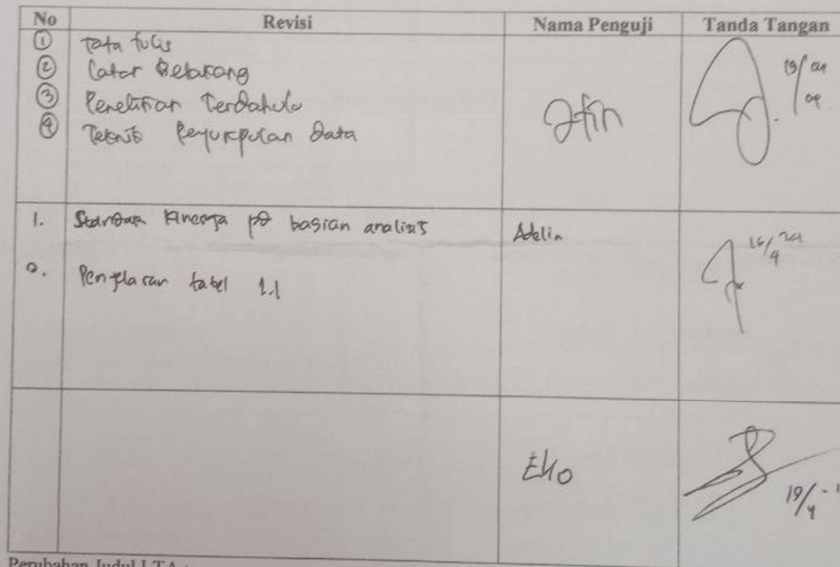 No Revisi Nama Penguji Tanda Tangan
① Tata tulis
② Latar Belakang
③ Penelitian Terdahulu
④ Teknik Pengumpulan Data
19/04
1. Standar Kinerja pd bagian analisis Adelin
16/4 24
2. Penjelasan tabel 1.1
Eko
19/4
Perubahan Judul LTA :